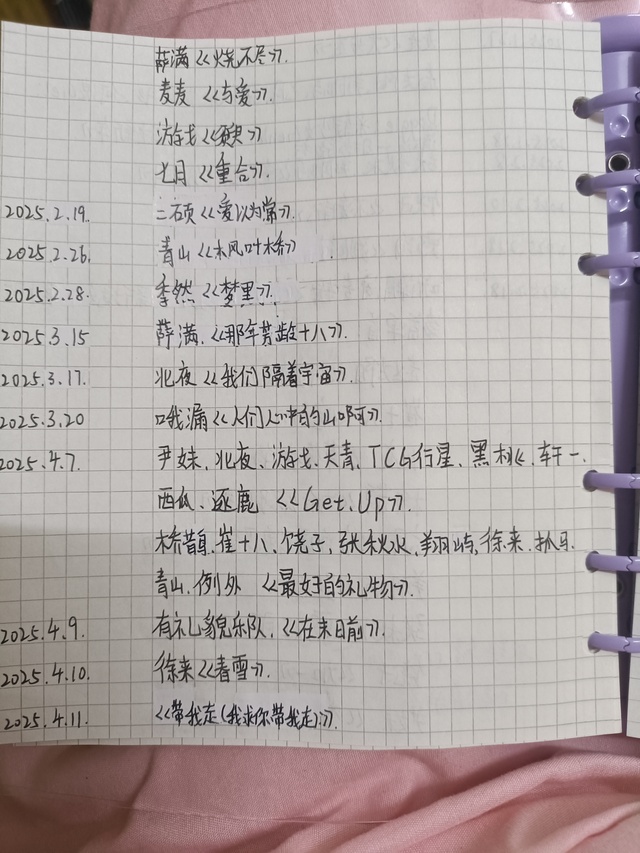 薛满《烧不尽》.
麦麦《与爱》.
游戈《》
七月《重合》.
2025.2.19. 二硕《爱以为常》.
2025.2.26. 青山《木风叶桥》
2025.2.28. 季然《梦里》.
2025.3.15 薛满.《那年剪龄十八》.
2025.3.17. 北夜《我们隔着宇宙》.
2025.3.20 哦漏《人们心中的山啊》.
2025.4.7. 尹姝.北夜、游戈、天青、TCG行星、黑桃、轩一.
西瓜、逐鹿《Get.Up》.
桥昔.崔十八、饶子、张秋水、翔屿、徐来.扒马.
青山.例外《最好的礼物》.
2025.4.9. 有礼貌乐队.《在末日前》.
2025.4.10. 徐来《春雪》.
2025.4.11. 《带我走(我求你带我走)》.